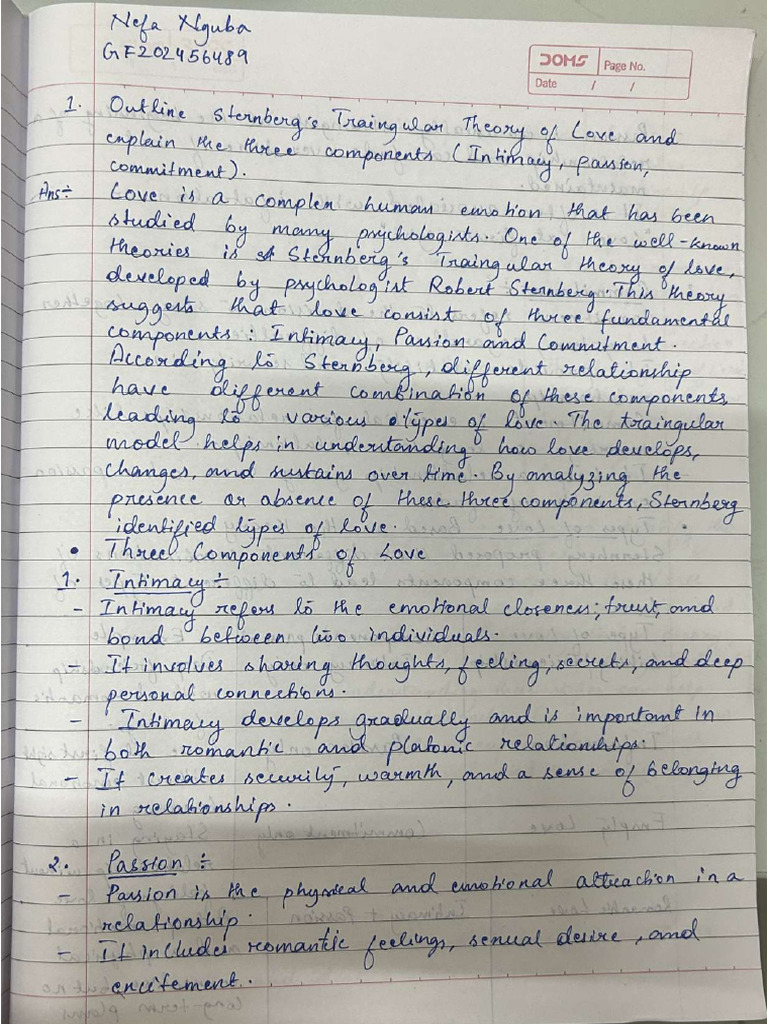 Nefa Nguba
GF202456489
DOMS
Page No.
Date / /
1. Outline Sternberg's Traingular Theory of Love and
explain the three components (Intimacy, passion,
commitment).
Ans÷ Love is a complex human emotion that has been
studied by many psychologists. One of the well-known
theories is Sternberg's Traingular theory of love,
developed by psychologist Robert Sternberg. This theory
suggests that love consist of three fundamental
components: Intimacy, Passion and Commitment.
According to Sternberg, different relationship
have different combination of these components,
leading to various types of love. The traingular
model helps in understanding how love develops,
changes, and sustains over time. By analyzing the
presence or absence of these three components, Sternberg
identified types of love.
• Three Components of Love
1. Intimacy ÷
- Intimacy refers to the emotional closeness, trust, and
bond between two individuals.
- It involves sharing thoughts, feeling, secrets, and deep
personal connections.
- Intimacy develops gradually and is important in
both romantic and platonic relationships.
- It creates security, warmth, and a sense of belonging
in relationships.
2. Passion ÷
- Passion is the physical and emotional attraction in a
relationship.
- It includes romantic feelings, sexual desire, and
excitement.